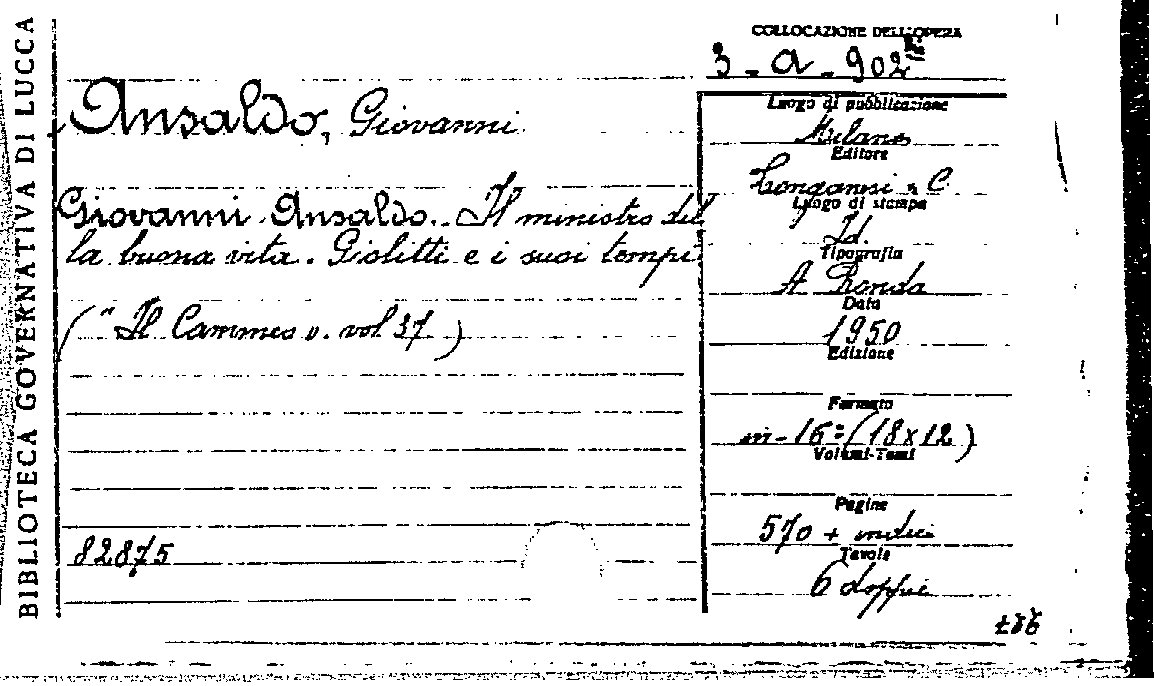 BIBLIOTECA GOVERNATIVA DI LUCCA
COLLOCAZIONE DELL'OPERA
3 - a - 902
Ansaldo, Giovanni
Giovanni Ansaldo. Il ministro del
la buona vita. Giolitti e i suoi tempi
(" Il Cammeo v. vol 37 )
82875
Luogo di pubblicazione
Milano
Editore
Longanesi & C
Luogo di stampa
Id.
Tipografia
A Ronda
Data
1950
Edizione
Formato
in-16º (18x12)
Volumi-Tomi
Pagine
570 + indici
Tavole
6 doppie